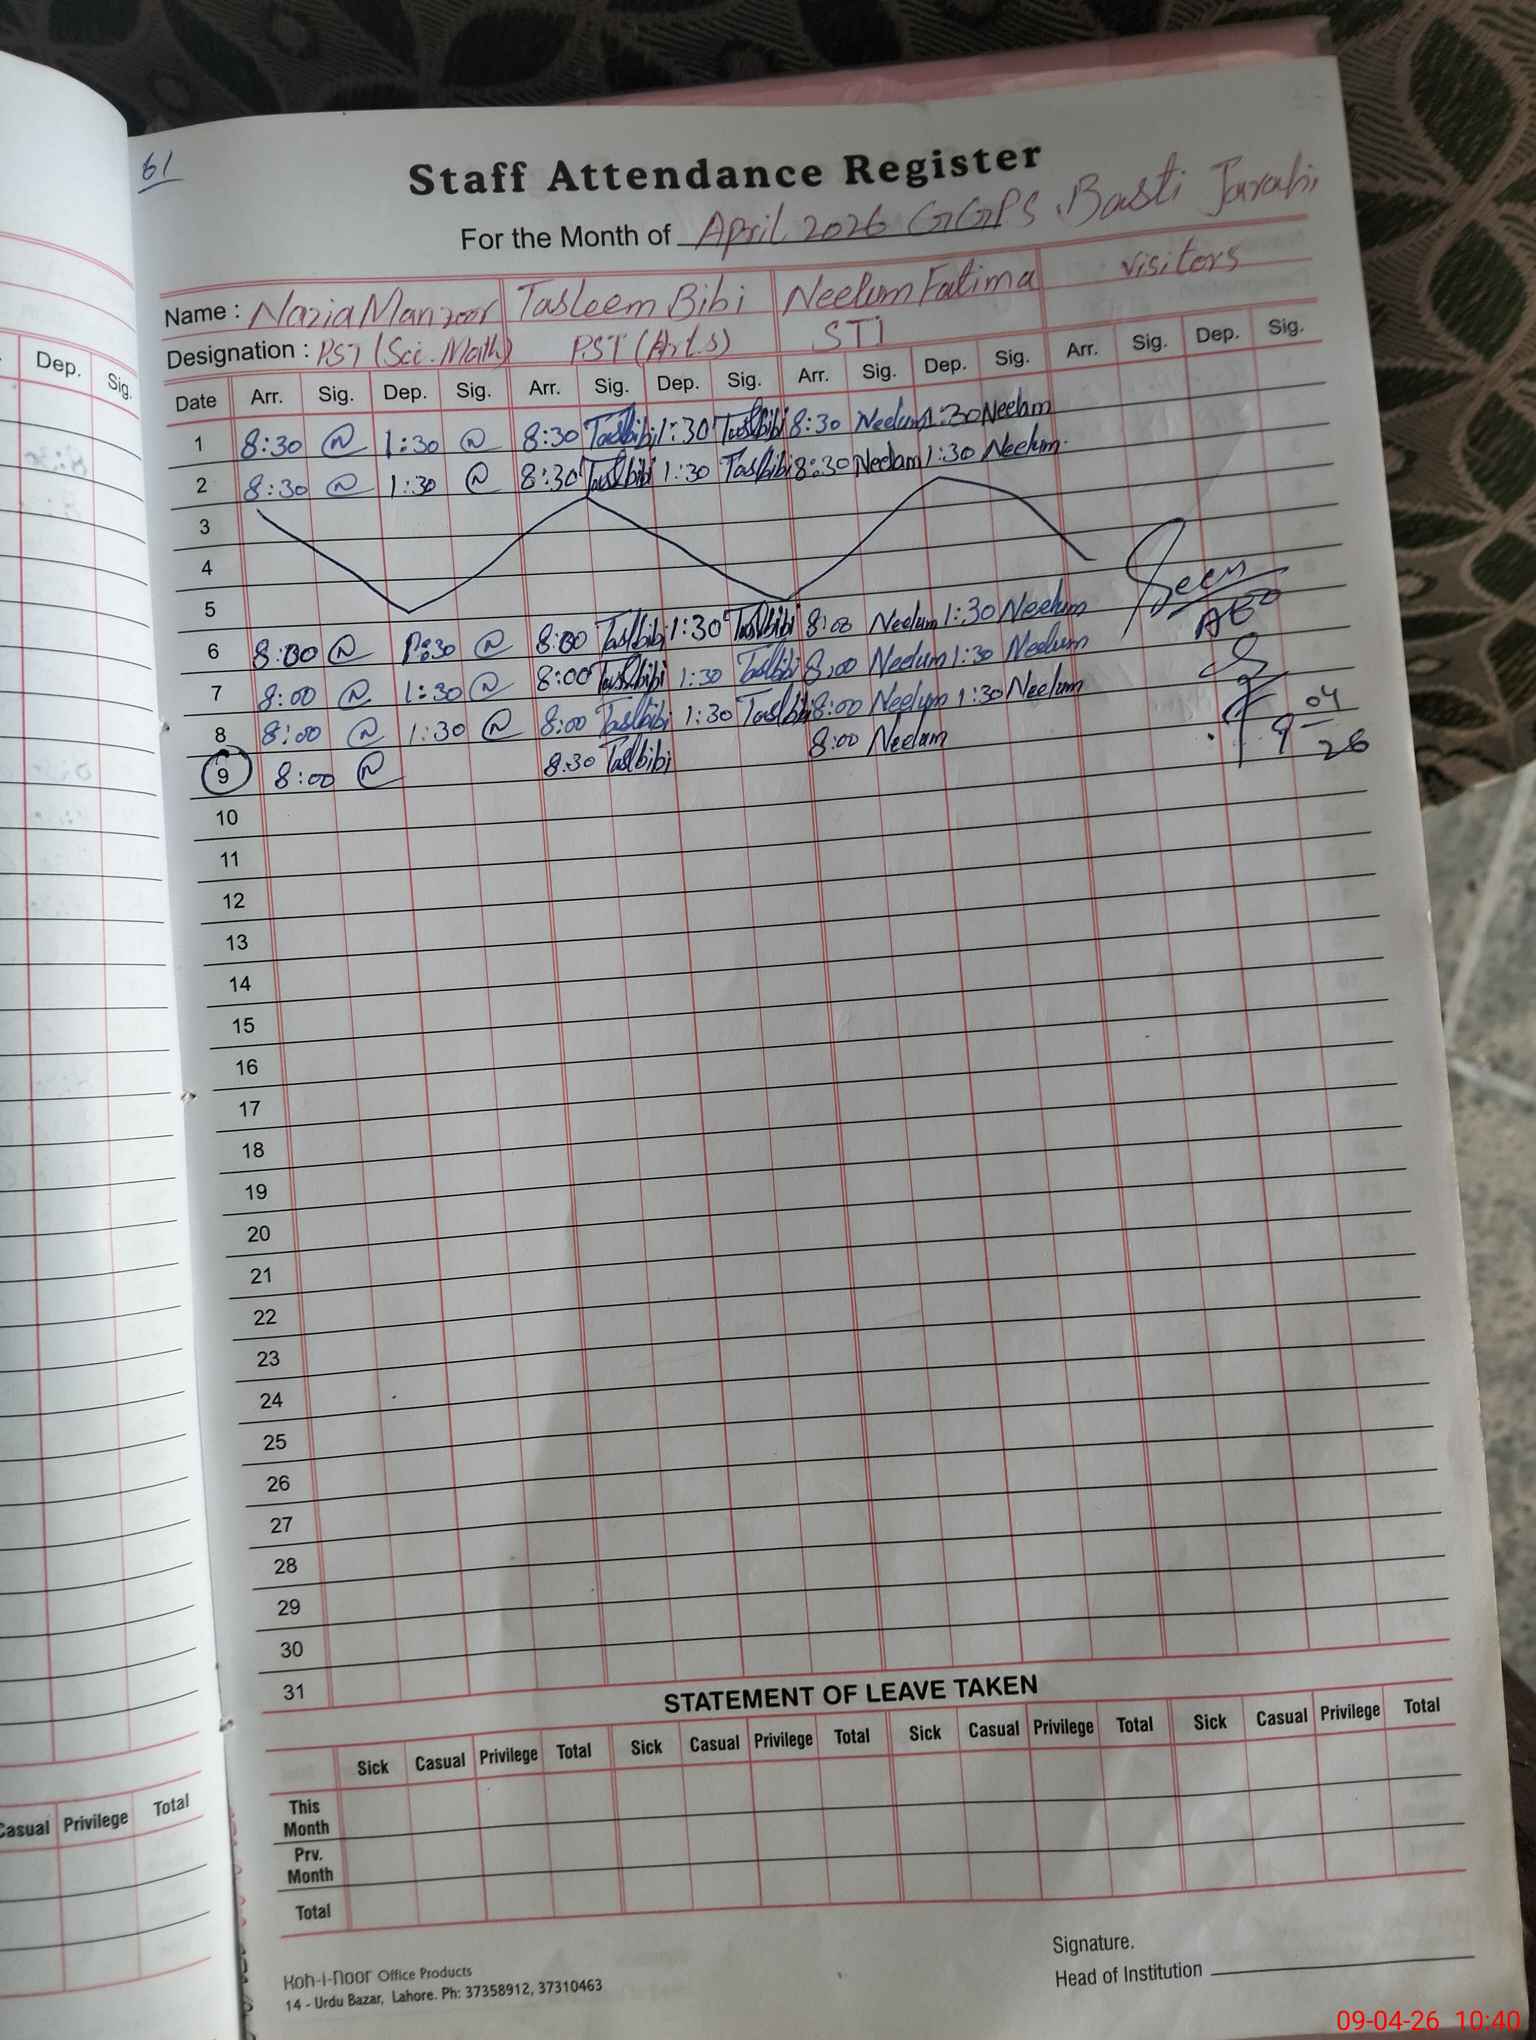 61
Staff Attendance Register
For the Month of April 2026 GGPS Basti Jarahi
Name : Nazia Manzoor Tasleem Bibi Neelum Fatima visitors
Designation : PST (Sci. Math) PST (Arts) STI
Date Arr. Sig. Dep. Sig. Arr. Sig. Dep. Sig. Arr. Sig. Dep. Sig. Arr. Sig. Dep. Sig.
Dep. Sig.
1 8:30 1:30 8:30 Taslbibi 1:30 Taslbibi 8:30 Neelum 1:30 Neelam
2 8:30 1:30 8:30 Taslbibi 1:30 Taslbibi 8:30 Neelam 1:30 Neelum
3
4
5
Seen
AEO
6 8:00 1:30 8:00 Taslbibi 1:30 Taslbibi 8:00 Neelum 1:30 Neelum
7 8:00 1:30 8:00 Taslbibi 1:30 Taslbibi 8:00 Neelum 1:30 Neelum
8 8:00 1:30 8:00 Taslbibi 1:30 Taslbibi 8:00 Neelum 1:30 Neelum
9 8:00 8:30 Taslbibi 8:00 Neelam
9 04 26
10
11
12
13
14
15
16
17
18
19
20
21
22
23
24
25
26
27
28
29
30
31
STATEMENT OF LEAVE TAKEN
Sick Casual Privilege Total Sick Casual Privilege Total Sick Casual Privilege Total Sick Casual Privilege Total
Casual Privilege Total
This Month
Prv. Month
Total
Signature.
Head of Institution
Koh-i-noor Office Products
14 - Urdu Bazar, Lahore. Ph: 37358912, 37310463
09-04-26 10:40